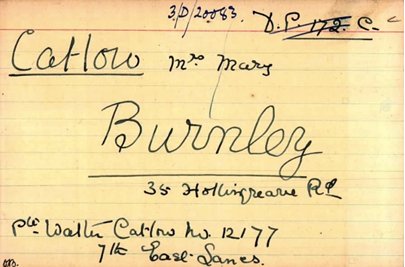 3/D/20083.
D.P. 172. C.
Catlow Mrs Mary
Burnley
35 Hollingreave Rd
Pte Walter Catlow No. 12177
7th East Lancs.